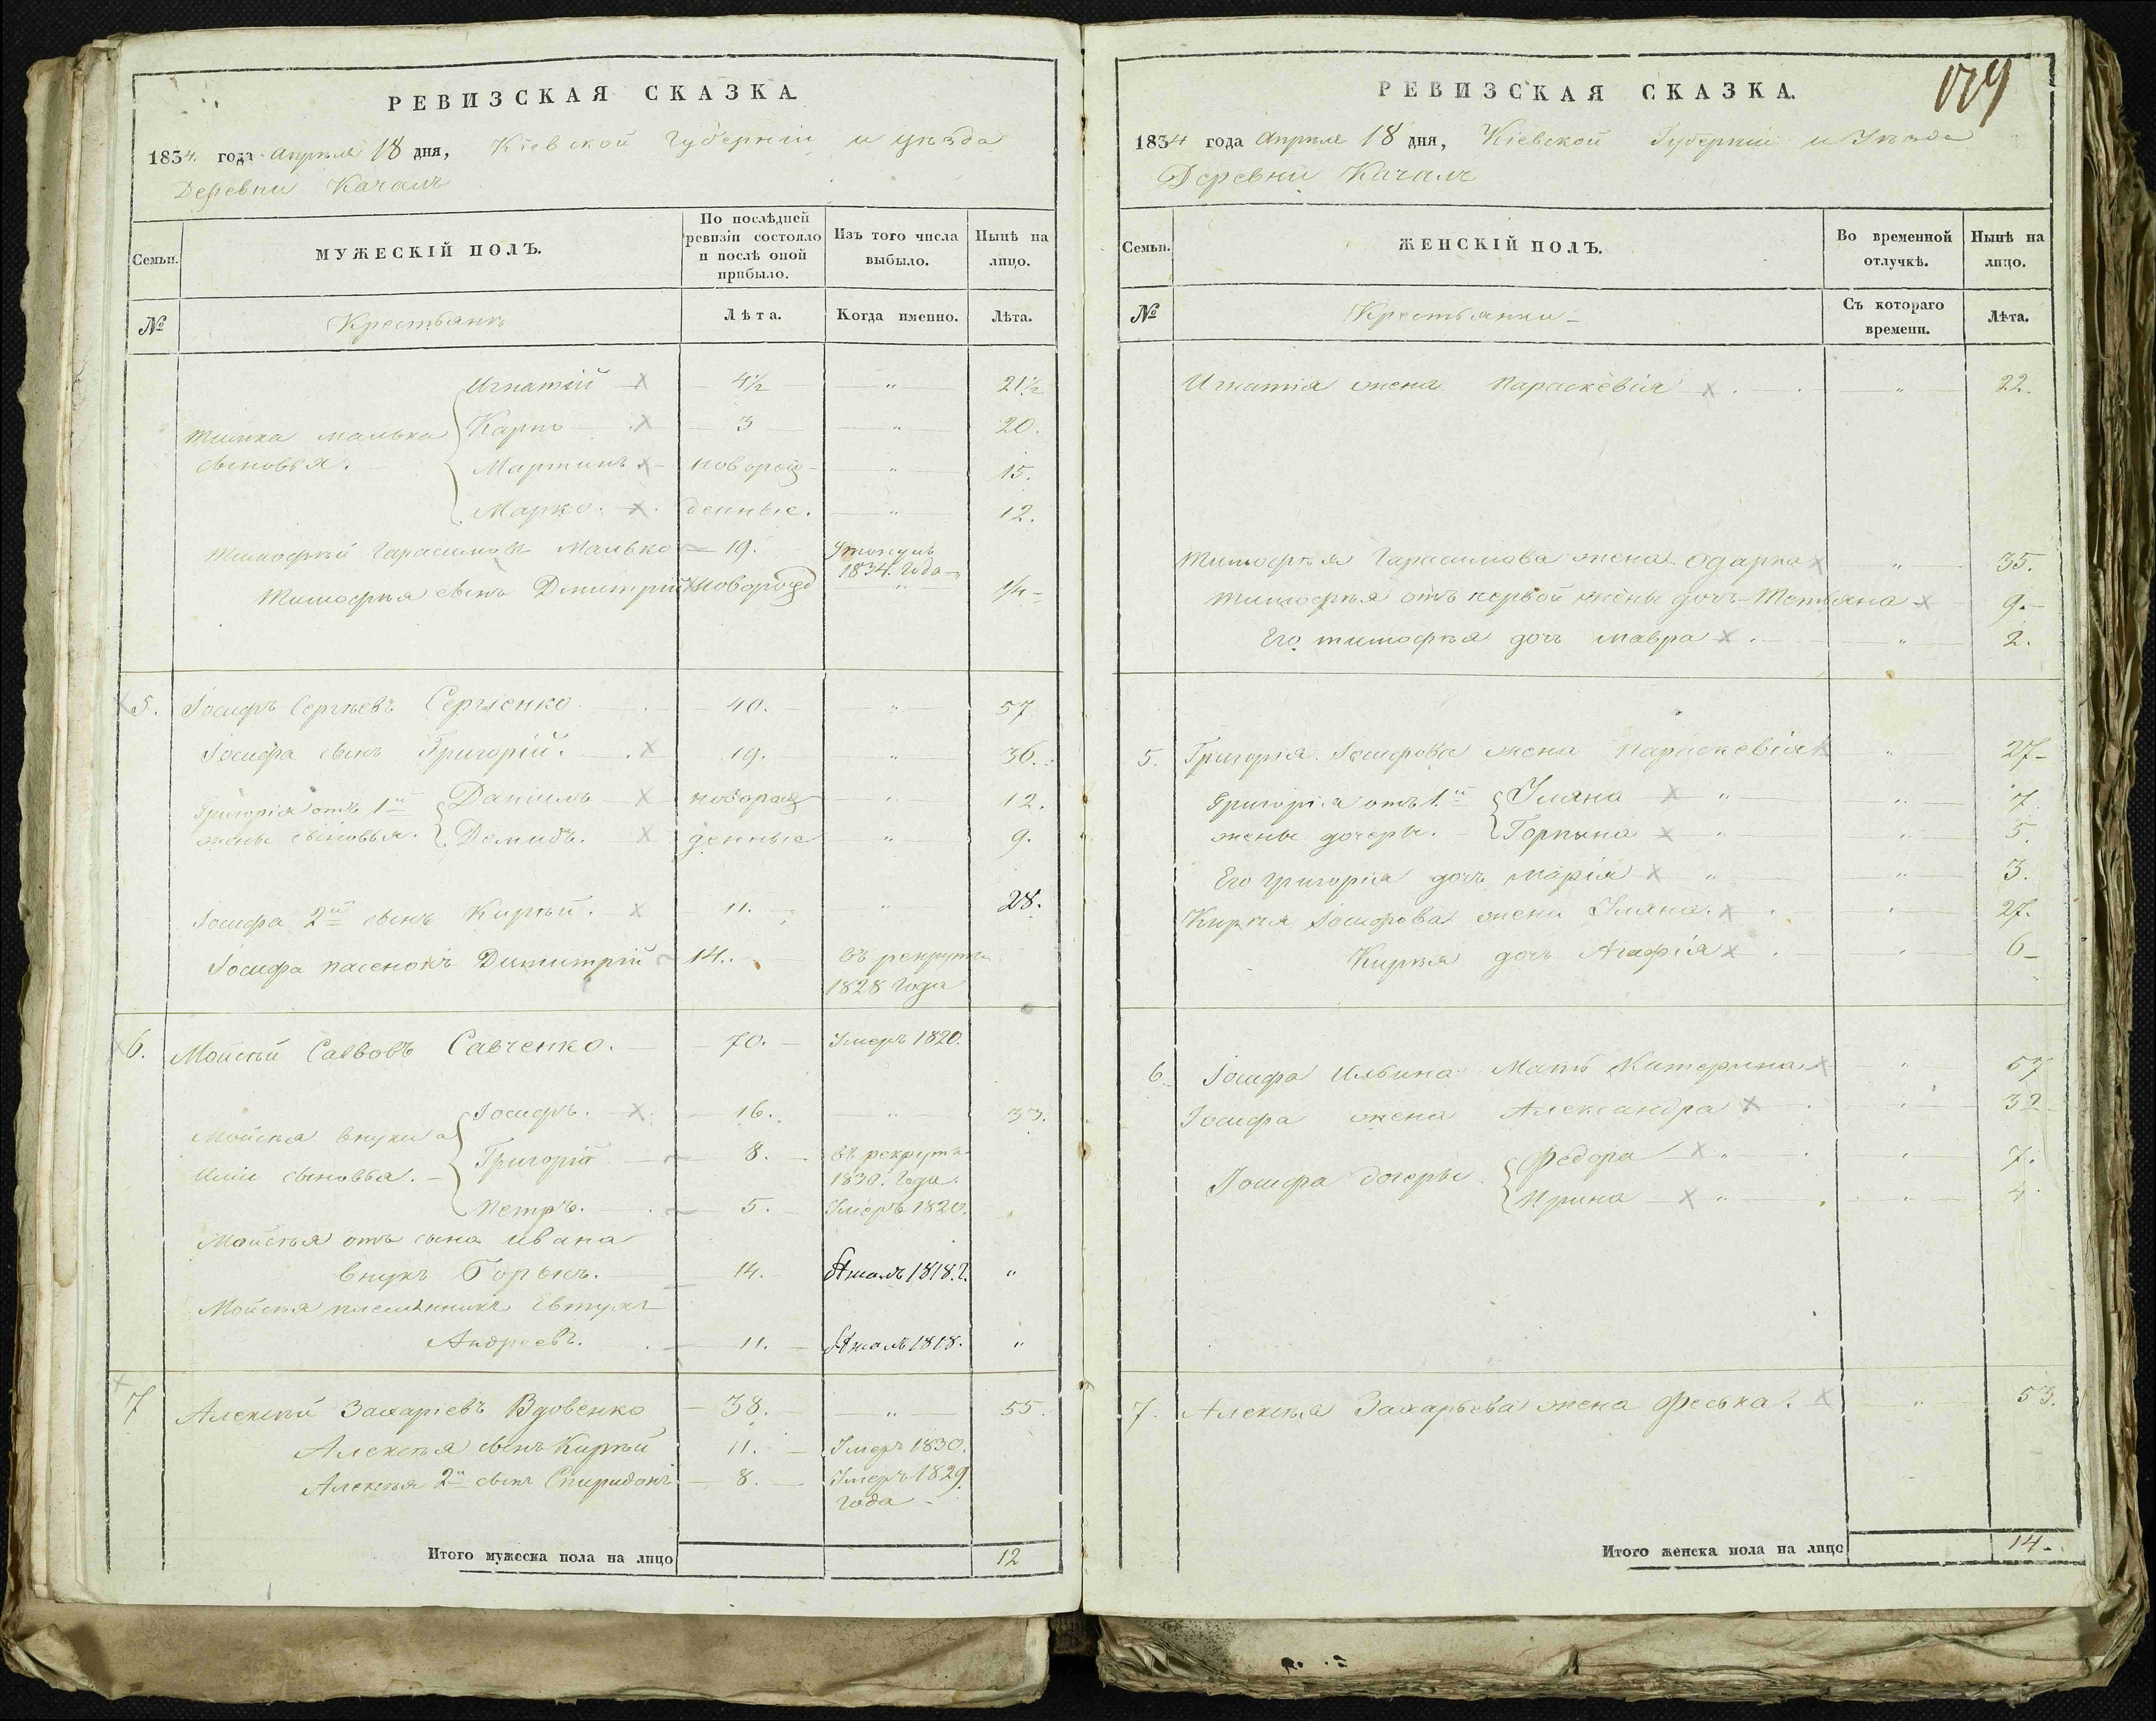 РЕВИЗСКАЯ СКАЗКА
1834. года Апреля 18 дня, Кіевской Губерніи и уѣзда
Деревни Качалъ
Семьи.
МУЖЕСКІЙ ПОЛЪ.
По послѣдней ревизіи состояло и послѣ оной прибыло.
Изъ того числа выбыло.
Нынѣ на лицо.
№
Крестьянъ
Лѣта.
Когда именно.
Лѣта.
Игнатій 4½ " 21½
Карпъ 3 " 20.
Тимка Малька
сыновья.
Мартинъ новорож- " 15.
Марко. денные. " 12.
Тимофѣй Гарасимовъ Малько 19.
1834. года
Тимофѣя сынъ Дмитрій новорожд " 1/4
5. Іосифъ Сергѣевъ Сергіенко 40. " 57
Іосифа сынъ Григорій. 19. " 36.
Григорія отъ 1й Даніилъ новорож " 12.
жены сыновья. Демидъ. денные " 9.
Іосифа 2й сынъ Кирѣй. 11. " 28.
Іосифа пасенокъ Димитрій 14. въ рекруты
1828 года
6. Мойсѣй Саввовъ Савченко. 70. Умеръ 1820.
Іосифъ. 16. " 33.
Мойсѣя внуки а
Григорій 8. въ рекруты
сыновья. 1830. года.
Петръ. 5. Умеръ 1820.
Мойсѣя отъ сына Ивана
внукъ 14. 1818. г. "
Мойсѣя племянникъ Евтухъ
Андреевъ. 11. 1818. "
7 Алексѣй Захаріевъ Вдовенко 38. " 55.
Алексѣя сынъ Кирѣй 11. Умеръ 1830.
Алексѣя 2й сынъ Спиридонъ 8. Умеръ 1829
года
Итого мужеска пола на лицо 12
РЕВИЗСКАЯ СКАЗКА.
1834 года Апреля 18 дня, Кіевской Губерніи и Уѣзда
Деревни Качалъ
Семьи.
ЖЕНСКІЙ ПОЛЪ.
Во временной отлучкѣ.
Нынѣ на лицо.
№
Крестьянки
Съ котораго времени.
Лѣта.
Игнатія жена Параскевія " 22.
Тимофѣя Гарасимова жена Одарка " 35.
Тимофѣя отъ первой жены дочь Тетьяна 9.
Его Тимофѣя дочь Мавра " 2.
5. Григорія Іосифова жена Параскевія " 27
Григорія отъ 1й Уляна " 7
жены дочеры. Горпына " 5.
Его Григорія дочь Марія " 3.
Кирѣя Іосифова жена Уляна " 27.
Кирѣя дочь Агафія " 6
6. Іосифа Ильина Мать Катерина " 57
Іосифа жена Александра " 32
Федора " 7.
Іосифа дочеры
Ирина " 4.
7. Алексѣя Захарьева жена Феська. " 53.
Итого женска пола на лицо 14.